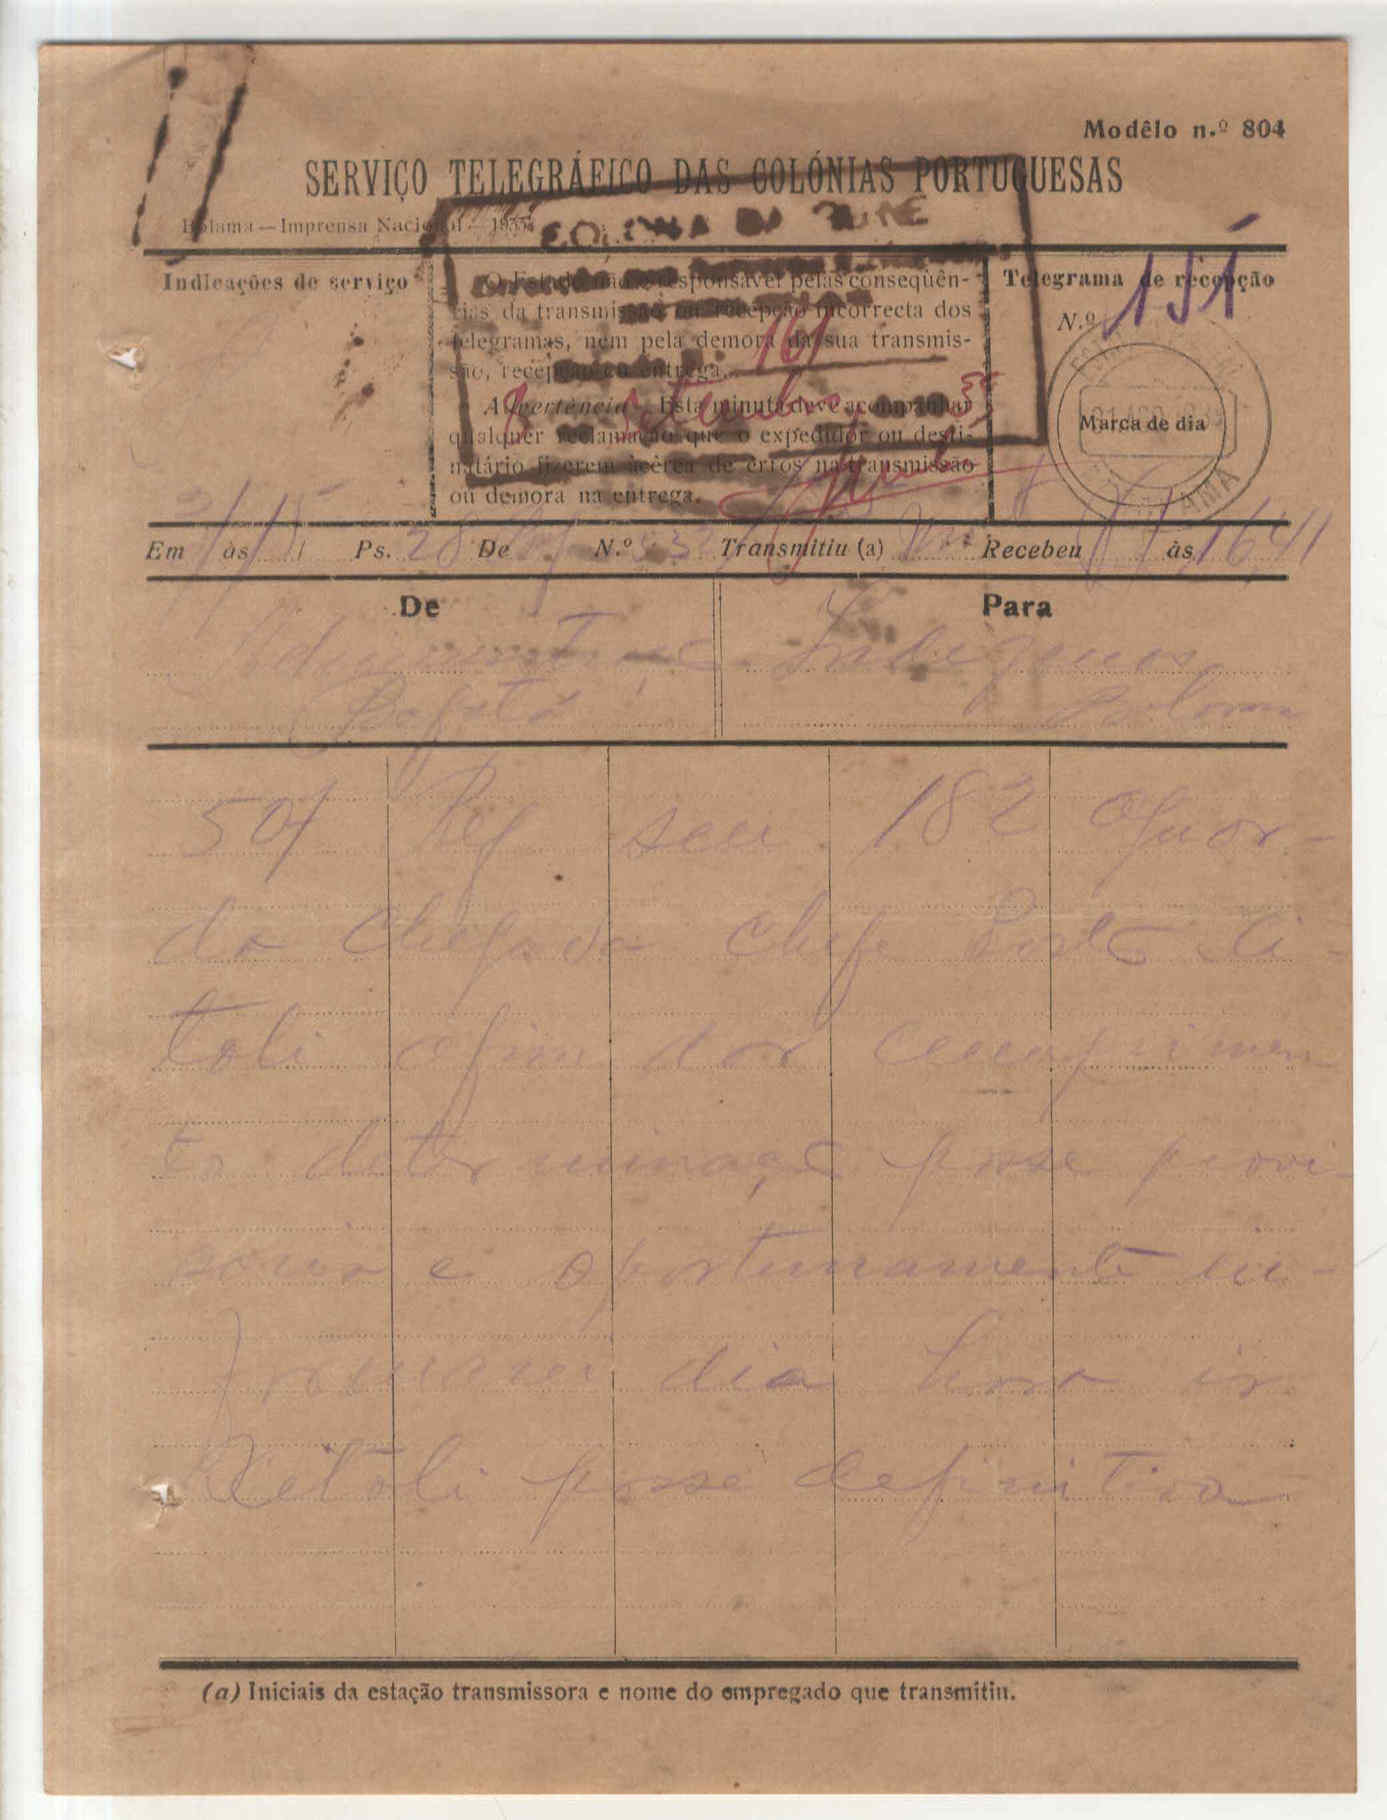 Modêlo n.º 804
SERVIÇO TELEGRÁFICO DAS COLÓNIAS PORTUGUESAS
Bolama—Imprensa Nacional—193
COLONIA DA GUINE
Indicações de serviço
O Estado não é responsável pelas conseqüên-
cias da transmissão ou recepção incorrecta dos
telegramas, nem pela demora da sua transmis-
são, recepção ou entrega.
Advertência—Esta minuta deve acompanhar
qualquer reclamação que o expedidor ou desti-
natário fizerem àcêrca de erros na transmissão
ou demora na entrega.
161
Setembro 35
Telegrama de recepção
N.º 151
Marca de dia
Em às Ps. 28 De N.º Transmitiu (a) Recebeu às 16,41
De
Para
Indigenas
Bafatá
Bolama
501 Ref seu 182 aguar-
do chegada chefe Posto Xi-
toli afim dar cumprimen
to determinação posse provi-
soria e oportunamente in-
formarei dia hora ir
Xitoli posse definitiva
(a) Iniciais da estação transmissora e nome do empregado que transmitiu.